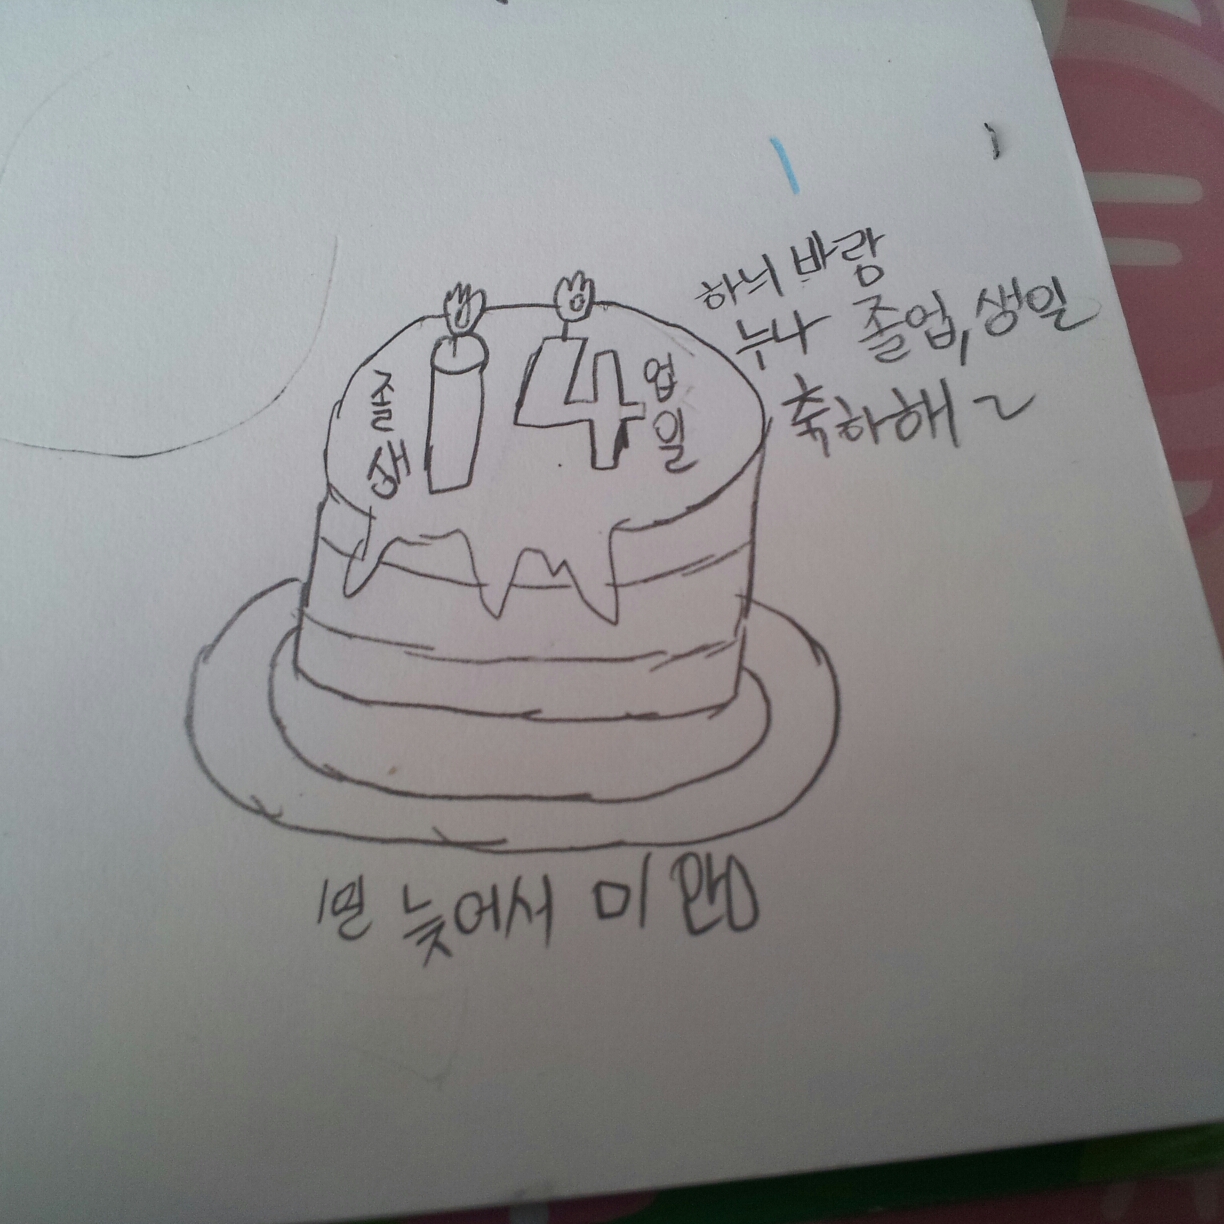 하늬 바람
누나 졸업, 생일
축하해~
졸 업
생 14 일
1일 늦어서 미안